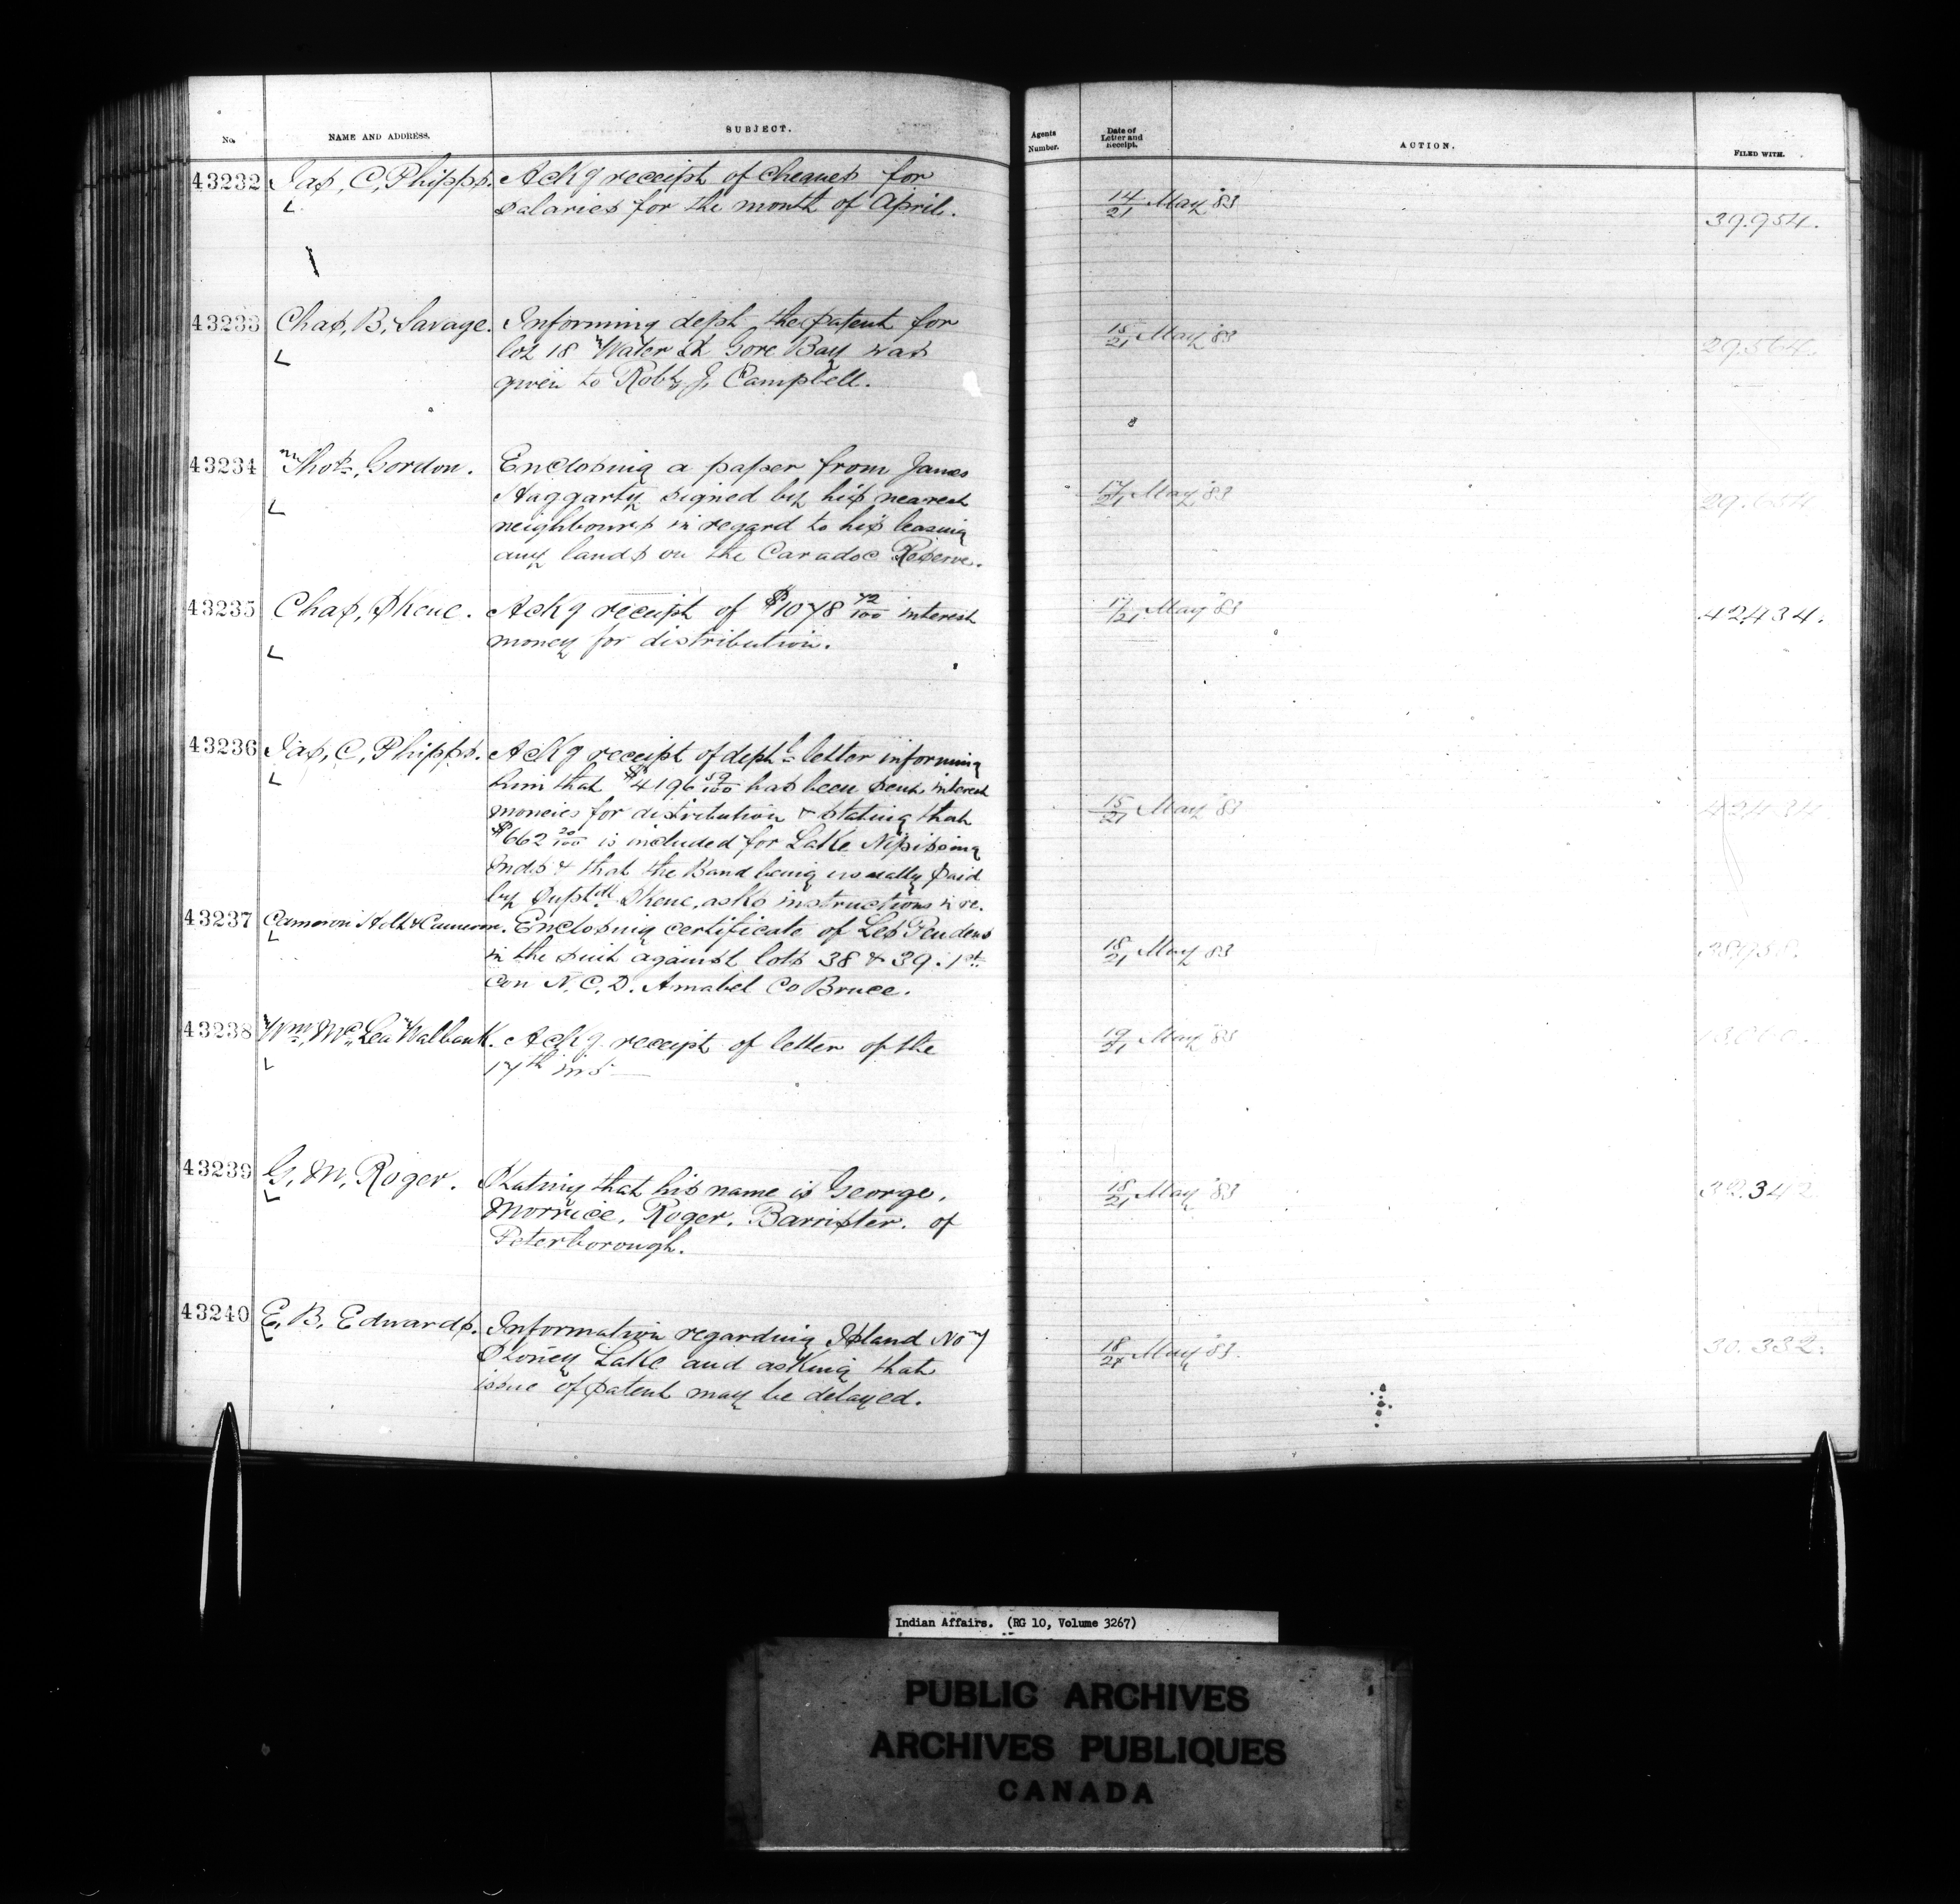 No. NAME AND ADDRESS. SUBJECT. Agents Number. Date of Letter and Receipt. ACTION. FILED WITH.
43232 Jas, C, Phipps. Ackg receipt of cheques for
salaries for the month of April. 14/21 May '83 39.954.
43233 Chas, B, Savage. Informing dept the patent for
lot 18 Water St Gore Bay was 15/21 May '83 29.564.
given to Robt, J, Campbell.
43234 Thos, Gordon. Enclosing a paper from James
Haggarty signed by his nearest 17/21 May '83 29.654
neighbours in regard to his leasing
any lands on the Caradoc Reserve.
43235 Chas, Skene. Ackg receipt of $1078 72/100 interest 17/21 May '83 42434.
money for distribution.
43236 Jas, C, Phipps. Ackg receipt of dept's letter informing
him that $4196 59/100 has been sent interest
moneies for distribution & stating that 15/21 May '83 42434
$662 20/100 is included for Lake Nipissing
Inds & that the Band being usually paid
by Supt Skene, asks instructions in re.
43237 Cameron Holt & Cameron. Enclosing certificate of Les Pendens
in the suit against lots 38 & 39. 1st 18/21 May '83
con N. C. D. Amabel Co Bruce.
43238 Wm, Mc Lea Walbank. Ackg receipt of letter of the 19/21 May '83
17th ins
43239 G. M. Roger. Stating that his name is George, 18/21 May '83 342
Morrice, Roger, Barrister. of
Peterborough.
43240 E. B. Edwards. Information regarding Island No 7
Stoney Lake and asking that 18/21 May '83. 30.332.
issue of patent may be delayed.
Indian Affairs. (RG 10, Volume 3267)
PUBLIC ARCHIVES
ARCHIVES PUBLIQUES
CANADA